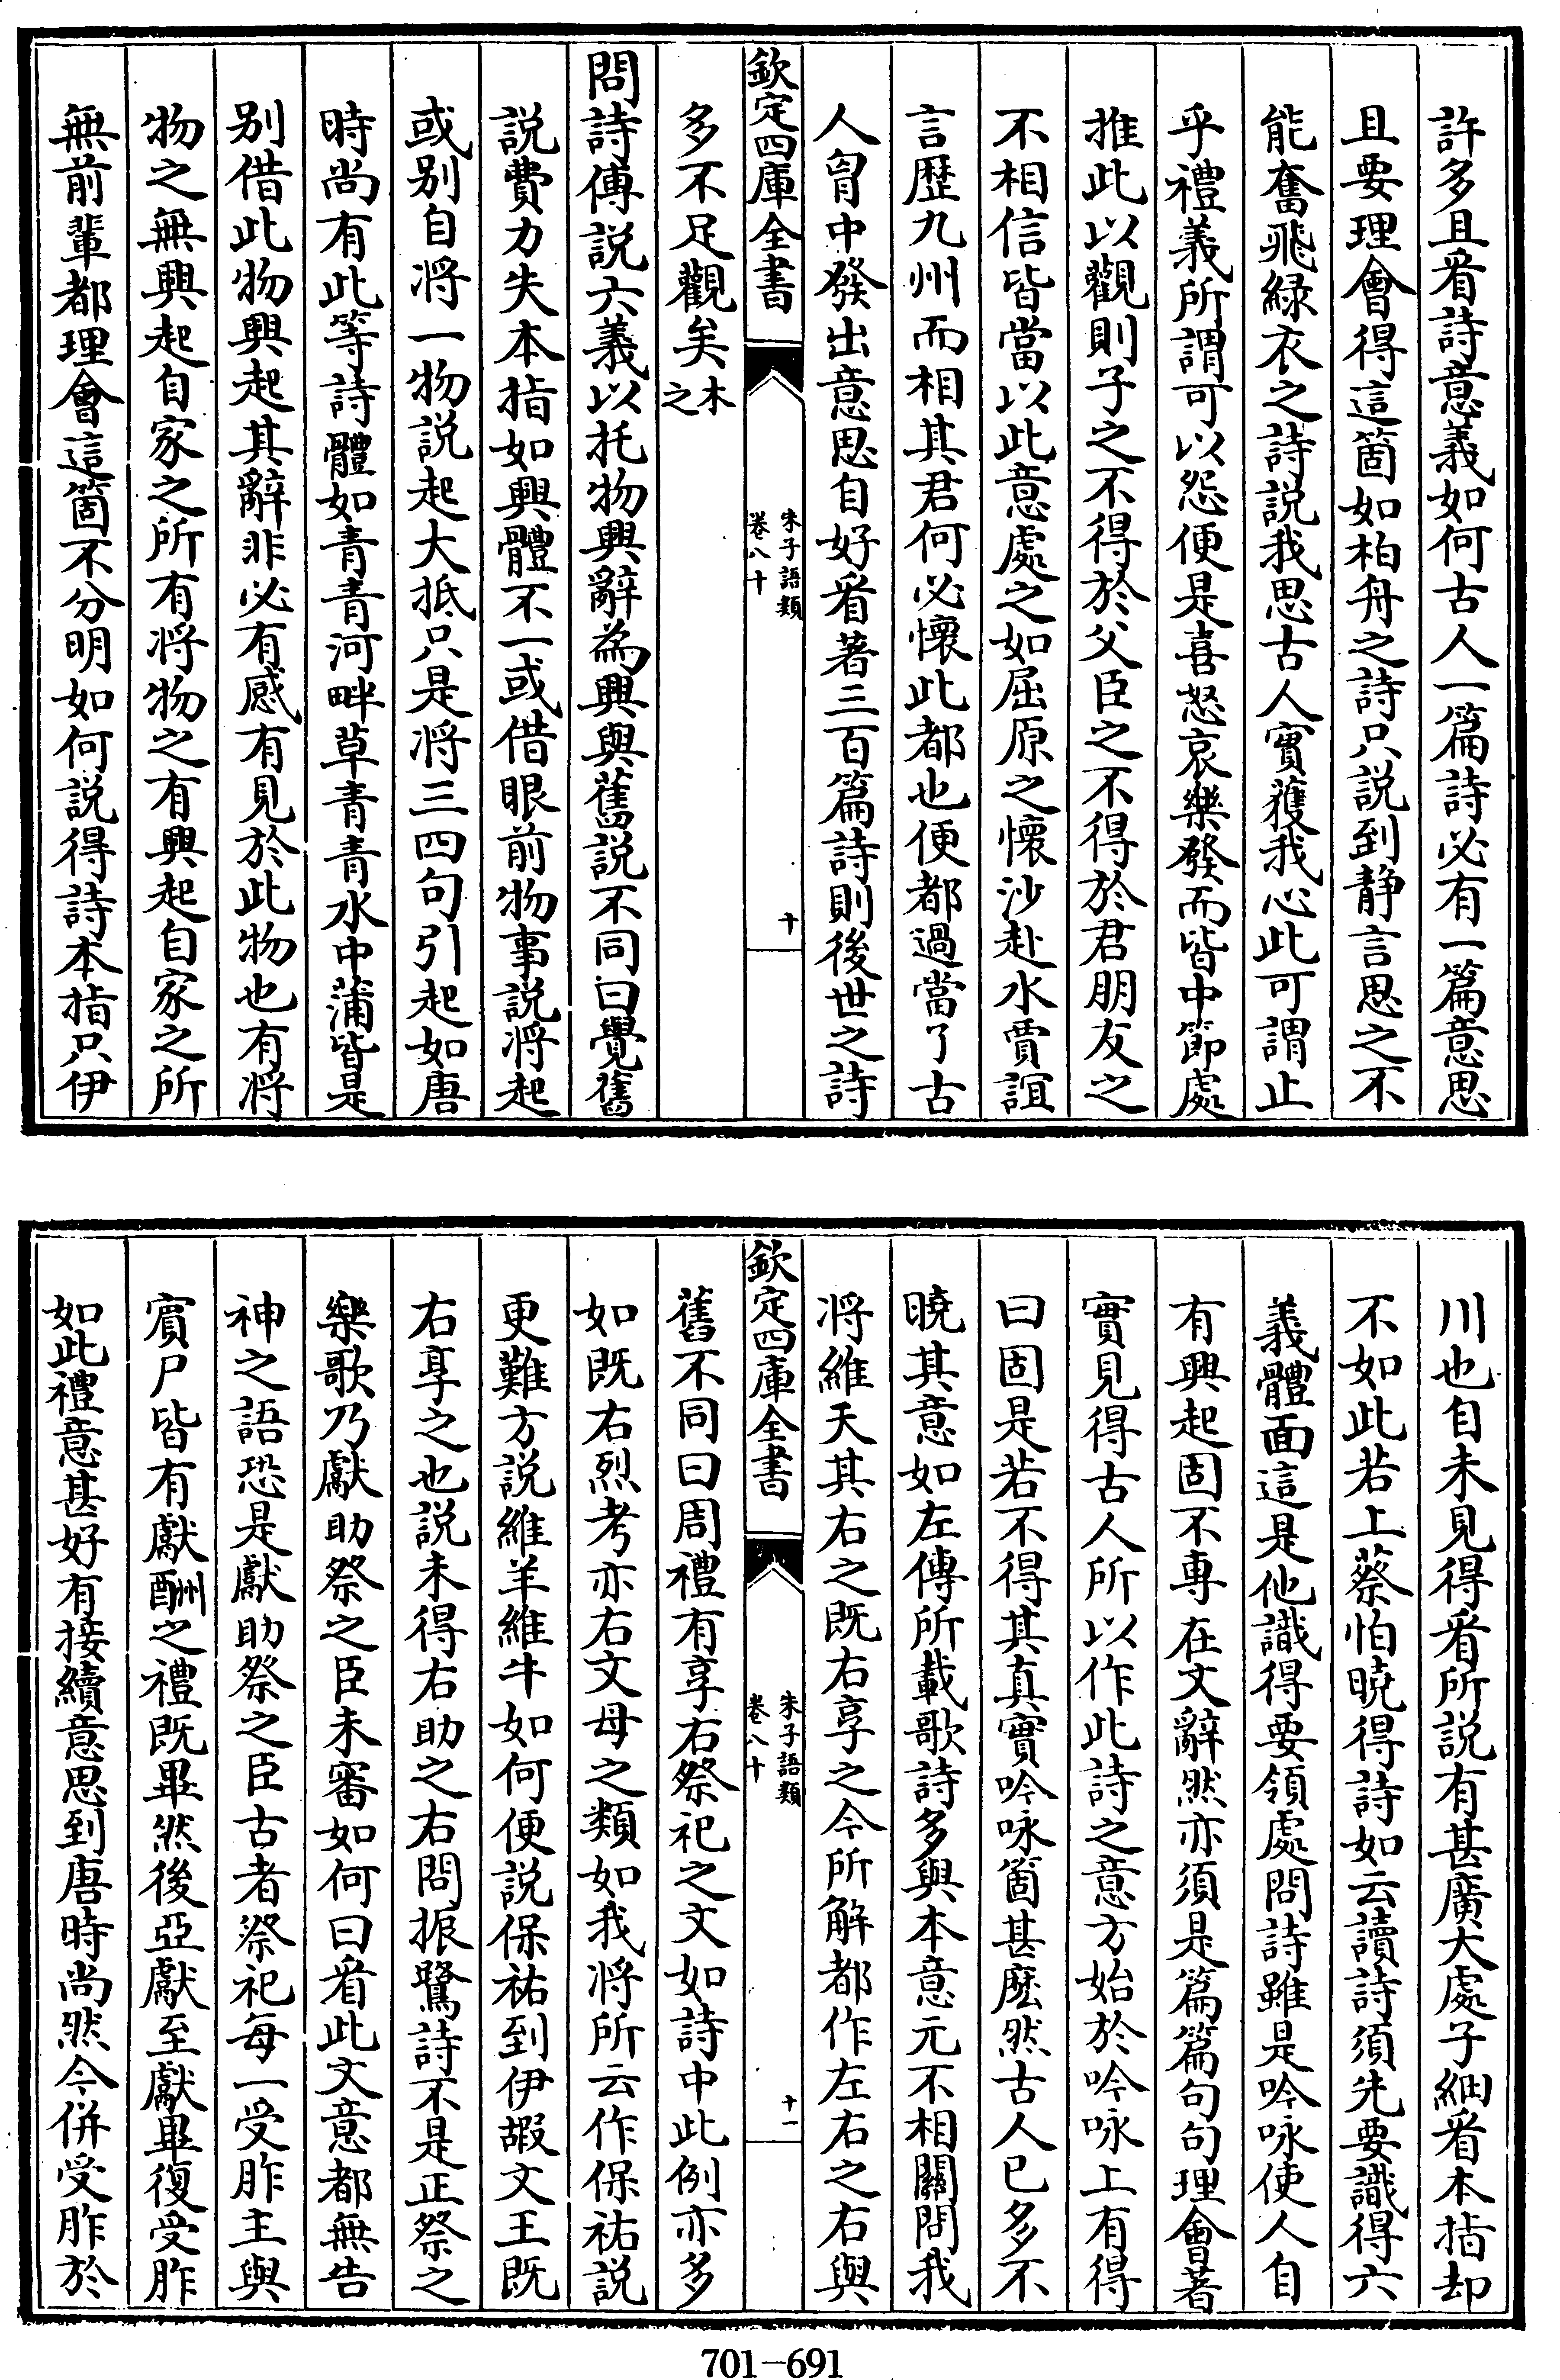 許多且㸔詩意義如何古人一篇詩必有一篇意思
且要理㑹得這箇如柏舟之詩只説到静言思之不
能奮飛緑衣之詩説我思古人實獲我心此可謂止
乎禮義所謂可以怨便是喜怒哀樂發而皆中節處
推此以觀則子之不得於父臣之不得於君朋友之
不相信皆當以此意處之如屈原之懷沙赴水賈誼
言歴九州而相其君何必懷此都也便都過當了古
人胷中發出意思自好㸔著三百篇詩則後世之詩
多不足觀矣木之
問詩傳説六義以托物興辭為興與舊説不同曰覺舊
説費力失本指如興體不一或借眼前物事説將起
或别自将一物説起大抵只是将三四句引起如唐
時尚有此等詩體如青青河畔草青青水中蒲皆是
别借此物興起其辭非必有感有見於此物也有将
物之無興起自家之所有将物之有興起自家之所
無前輩都理㑹這箇不分明如何説得詩本指只伊
欽定四庫全書
朱子語類
卷八十
十
川也自未見得㸔所説有甚廣大處子細㸔本指却
不如此若上蔡怕曉得詩如云讀詩須先要識得六
義體面這是他識得要領處問詩雖是吟咏使人自
有興起固不專在文辭然亦須是篇篇句句理㑹著
實見得古人所以作此詩之意方始於吟咏上有得
曰固是若不得其真實吟咏箇甚麽然古人已多不
曉其意如左傳所載歌詩多與本意元不相關問我
将維天其右之既右享之今所解都作左右之右與
舊不同曰周禮有享右祭祀之文如詩中此例亦多
如既右烈考亦右文母之類如我将所云作保祐説
更難方説維羊維牛如何便説保祐到伊嘏文王既
右享之也説未得右助之右問振鷺詩不是正祭之
樂歌乃獻助祭之臣未審如何曰㸔此文意都無告
神之語恐是獻助祭之臣古者祭祀每一受胙主與
賓尸皆有獻酬之禮既畢然後亞獻至獻畢復受胙
如此禮意甚好有接續意思到唐時尚然今併受胙於
欽定四庫全書
朱子語類
卷八十
十一
701-691